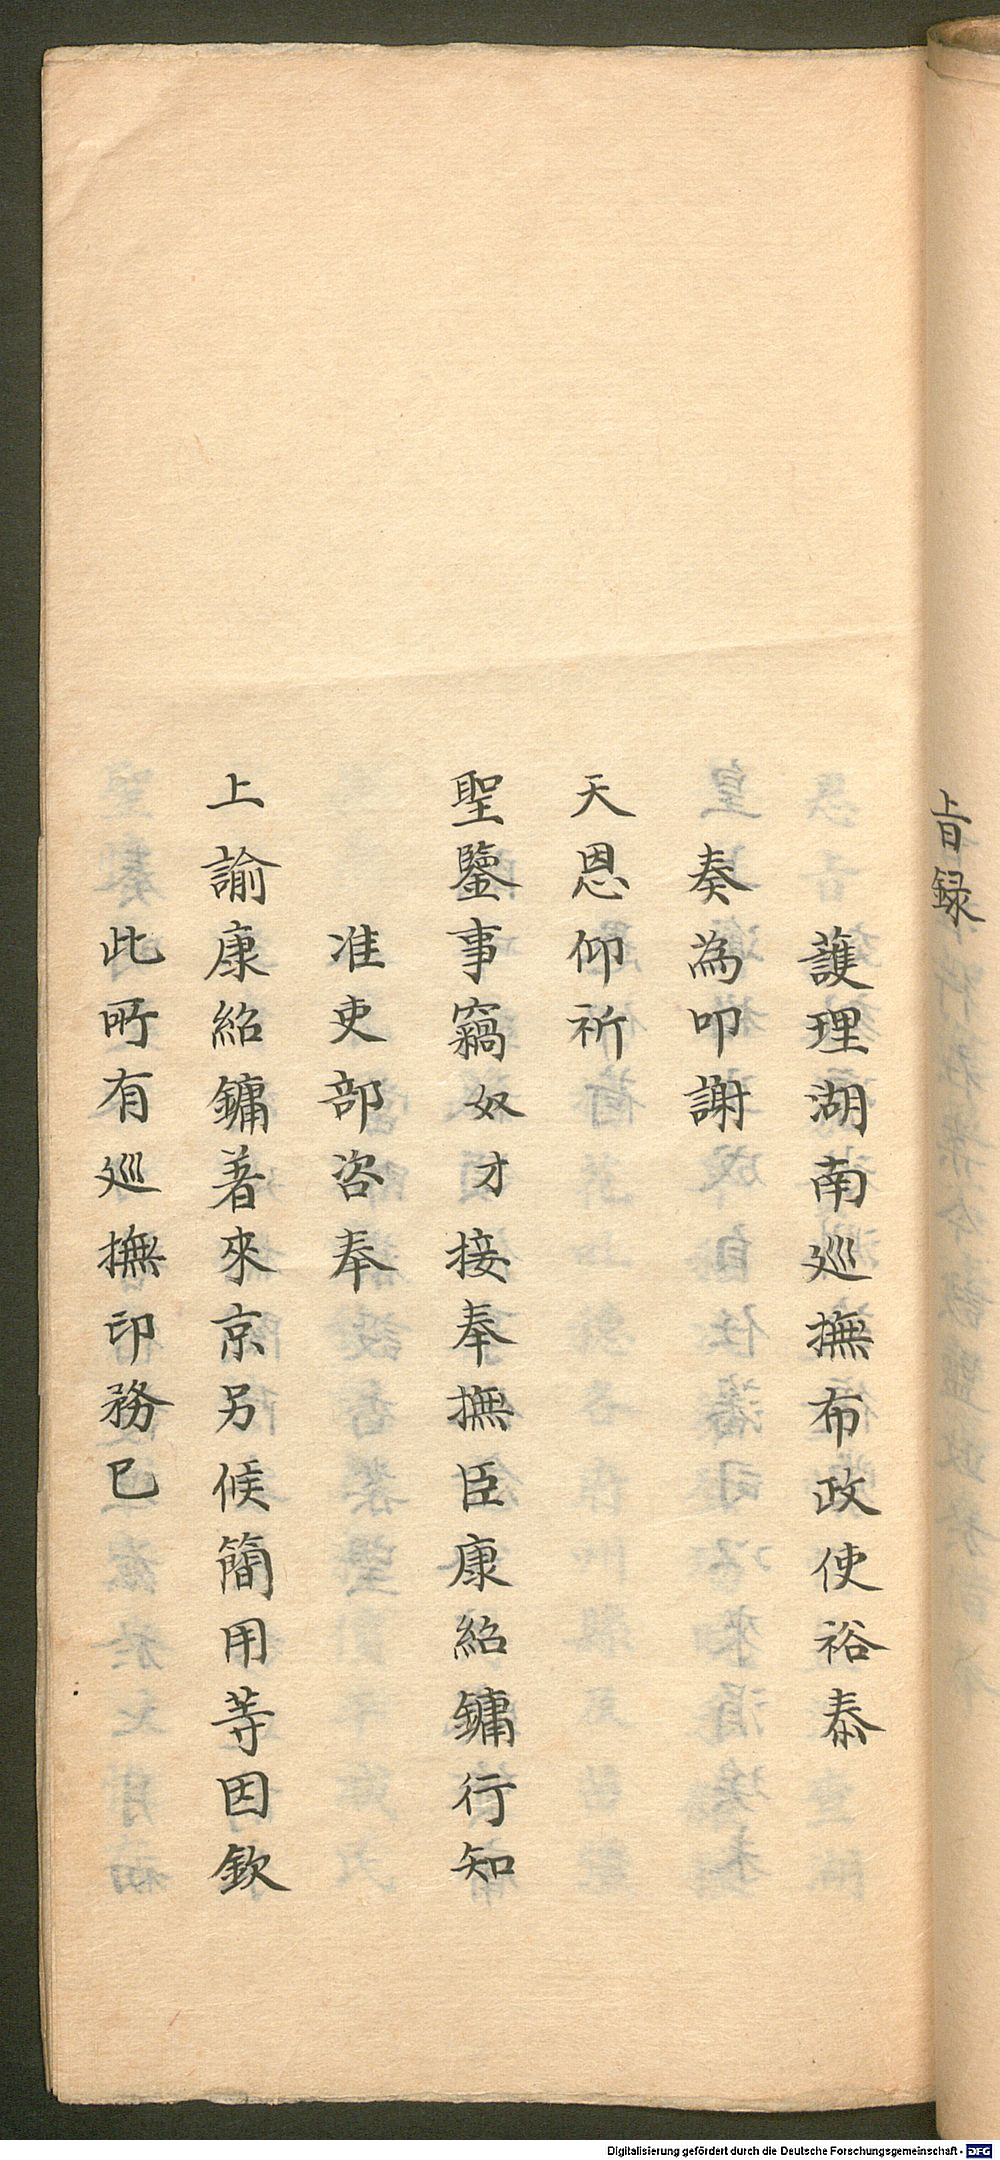 旨録
護理湖南巡撫布政使裕泰
奏為叩謝
天恩仰祈
聖鑒事竊奴才接奉撫臣康紹鏞行知
准吏部咨奉
上諭康紹鏞著來京另候簡用等因欽
此所有巡撫印務已
Digitalisierung gefördert durch die Deutsche Forschungsgemeinschaft - DFG